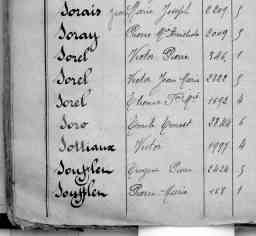 Sorais Marie Joseph 2201 5
Soray Pierre 2009 3
Sorel Victor Pierre 346 1
Sorel Victor Jean Marie 2222 5
Sorel Thomas 1692 4
Soro Ernest 2844 6
Sottiaux Victor 1997 4
Soufflen Pierre 2424 5
Soufflen Pierre Marie 168 1